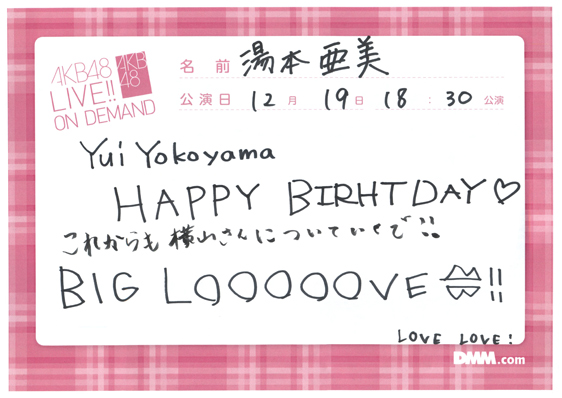 AKB48
LIVE!!
ON DEMAND
AKB
48
名前 湯本亜美
公演日 12月 19日 18:30公演
Yui Yokoyama
HAPPY BIRHTDAY♡
これからも横山さんについていくで!!
BIG LOOOOOVE !!
LOVE LOVE!
DMM.com